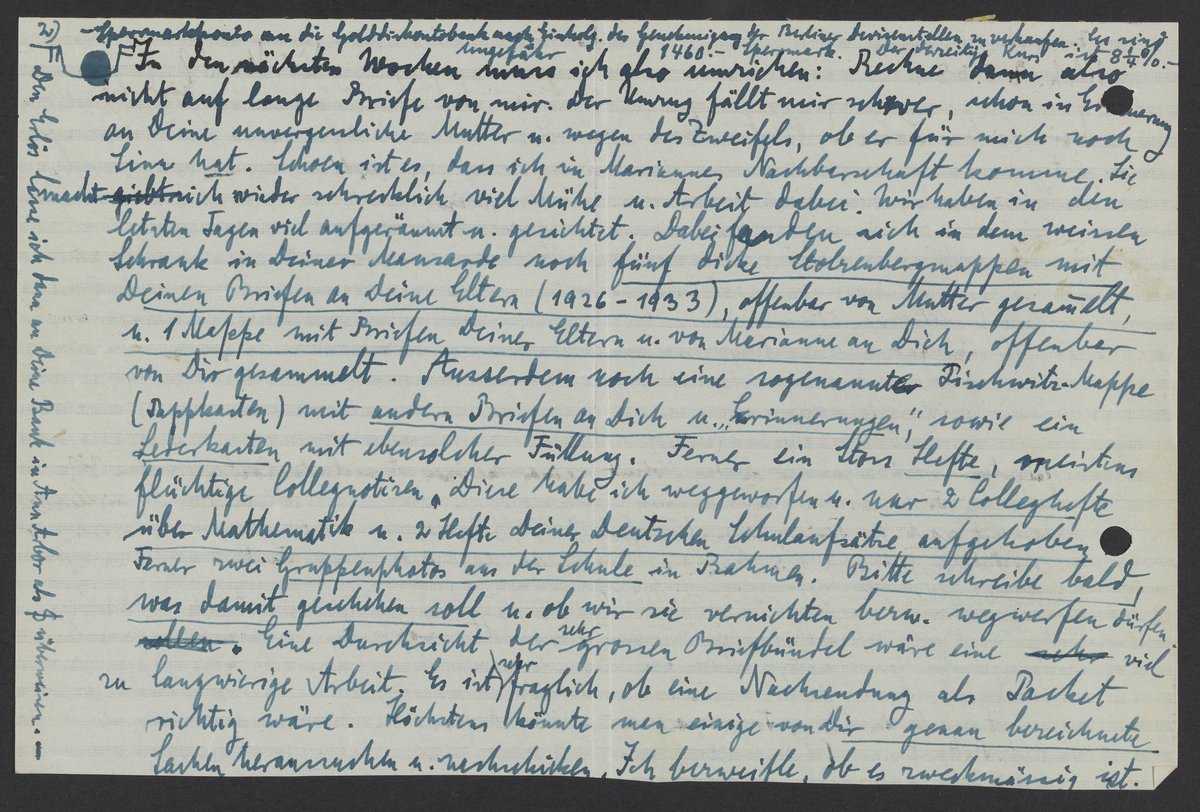 Sperrmarkkonto an die Golddiskontobank nach Einholg. der Genehmigung der Berliner Devisenstellen zu verkaufen. Es sind
ungefähr 1460.- Sperrmark. Der derzeitige Kurs ist 8¼%.-
In den nächsten Wochen muss ich also umziehen: Rechne dann also
nicht auf lange Briefe von mir. Der Umzug fällt mir schwer, schon in Erinnerung
an Deine unvergessliche Mutter u. wegen des Zweifels, ob er für mich noch
Sinn hat. Schoen ist es, dass ich in Mariannes Nachbarschaft komme. Sie
macht sich wieder schrecklich viel Mühe u. Arbeit dabei. Wir haben in den
letzten Tagen viel aufgeräumt u. gesichtet. Dabei fanden sich in dem weissen
Schrank in Deiner Mansarde noch fünf dicke Stolzenbergmappen mit
Deinen Briefen an Deine Eltern (1926-1933), offenbar von Mutter gesammelt,
u. 1 Mappe mit Briefen Deiner Eltern u. von Marianne an Dich, offenbar
von Dir gesammelt. Ausserdem noch eine sogenannte Tischwitz-Mappe
(Pappkasten) mit andern Briefen an Dich u. „Erinnerungen", sowie ein
Lederkasten mit ebensolcher Füllung. Ferner ein Stoss Hefte, meistens
flüchtige Collegnotizen. Diese habe ich weggeworfen u. nur 2 Colleghefte
über Mathematik u. 2 Hefte Deiner Deutschen Schulaufsätze aufgehoben
Ferner zwei Gruppenphotos aus der Schule in Rahmen. Bitte schreibe bald,
was damit geschehen soll u. ob wir sie vernichten bezw. wegwerfen dürfen
sollen. Eine Durchsicht der sehr grossen Briefbündel wäre eine sehr viel
zu langwierige Arbeit. Es ist sehr fraglich, ob eine Nachsendung als Packet
richtig wäre. Höchstens könnte man einige von Dir genau bezeichnete
Sachen heraussuchen u. nachschicken. Ich bezweifle, ob es zweckmässig ist.
2) Den Erlös lasse ich dann an Deine Bank in Ann Arbor als $ überweisen.-